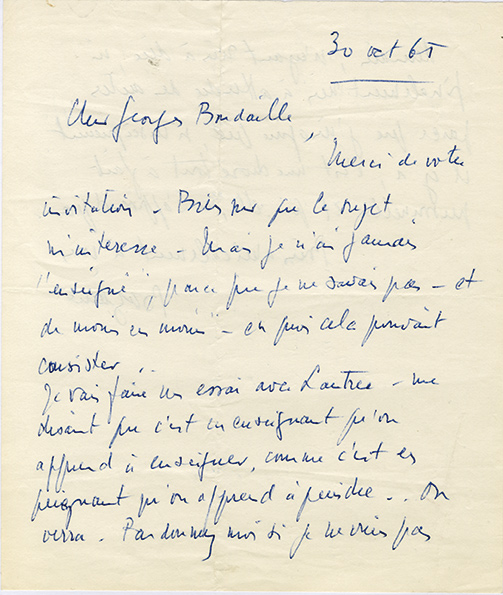 30 oct 65
Cher Georges Boudaille,
Merci de votre
invitation - Bien sûr que le sujet
m'intéresse - Mais je n'ai jamais
"enseigné", parce que je ne savais pas - et
de moins en moins - en quoi cela pouvait
consister.
Je vais faire un essai avec Lautrec - me
disant que c'est en enseignant qu'on
apprend à enseigner, comme c'est en
peignant qu'on apprend à peindre .. On
verra. Pardonnez moi si je ne viens pas